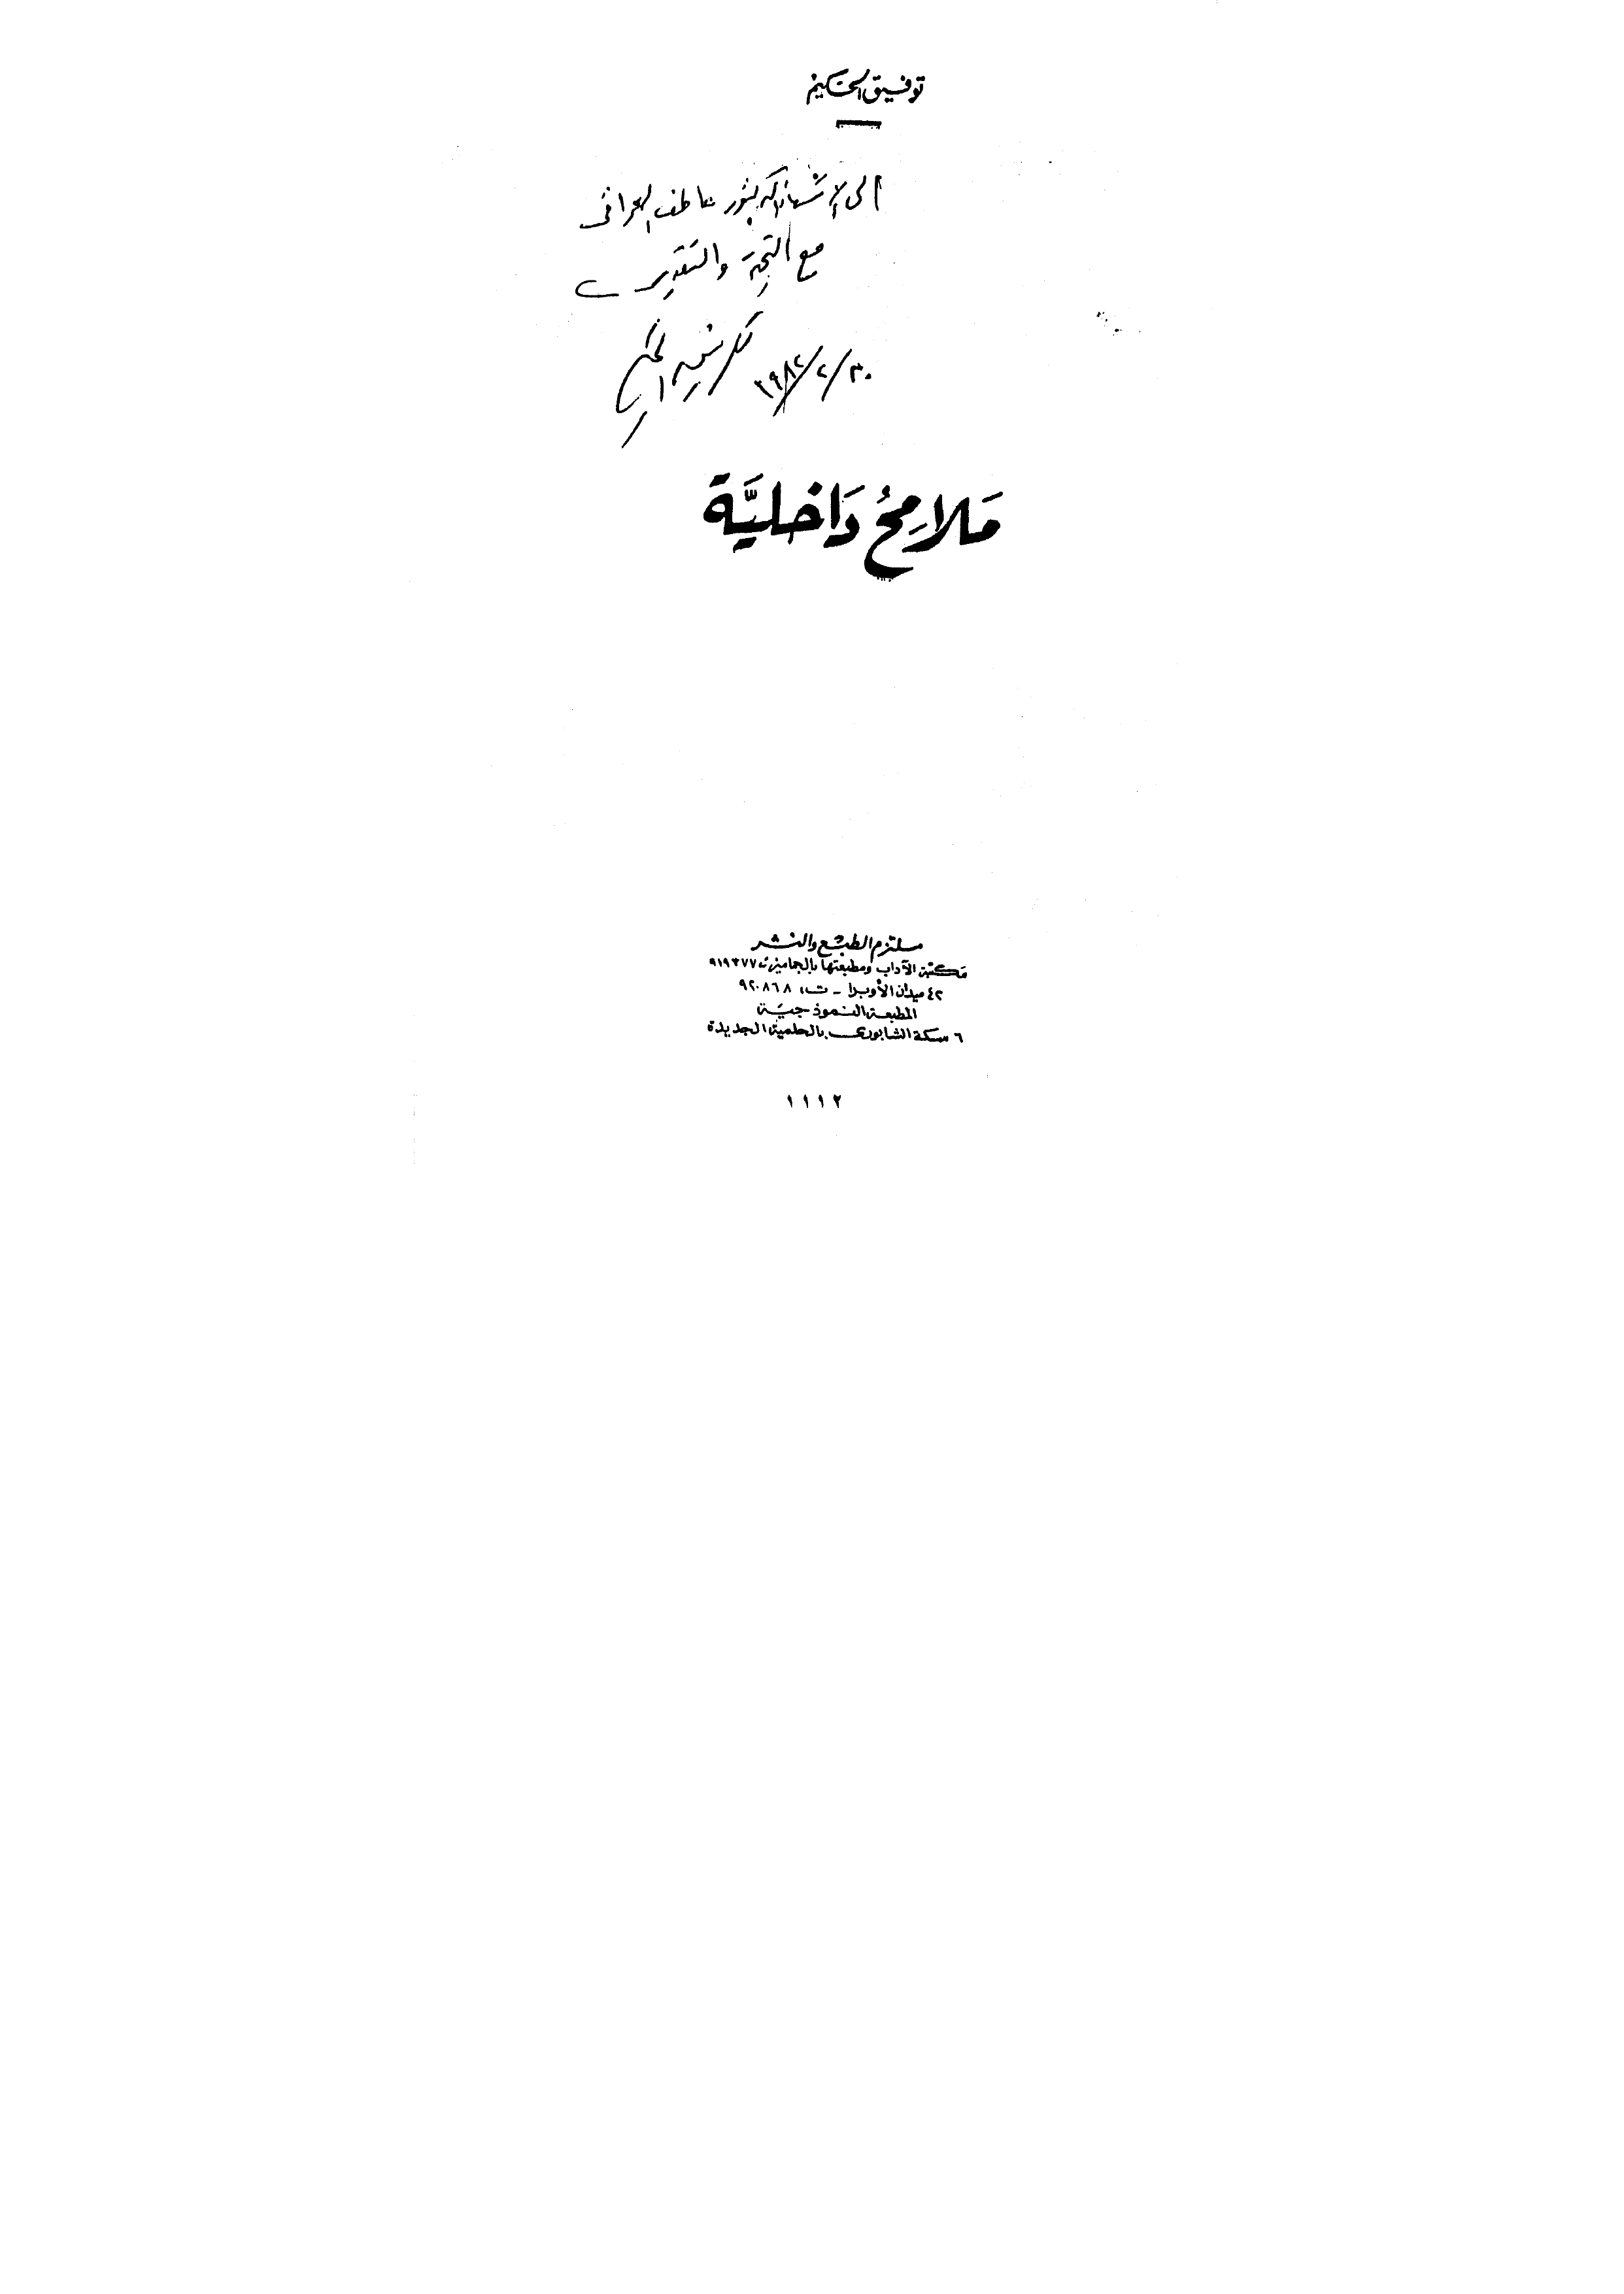 توفيق الحكيم
إلى الأستاذ الدكتور عاطف العراقى
مع التحية والتقدير
توفيق الحكيم
٣٠/٢/١٩٨٢
مَلامِحُ دَاخليَّة
ملتزم الطبع والنشر
مكتبة الآداب ومطبعتها بالجماميز ت ٩١٩٣٧٧
٤٢ ميدان الأوبرا - ت: ٩٢٠٨٦٨
المطبعة النموذجية
٦ سكة الشابورى بالحلمية الجديدة
١١١٢